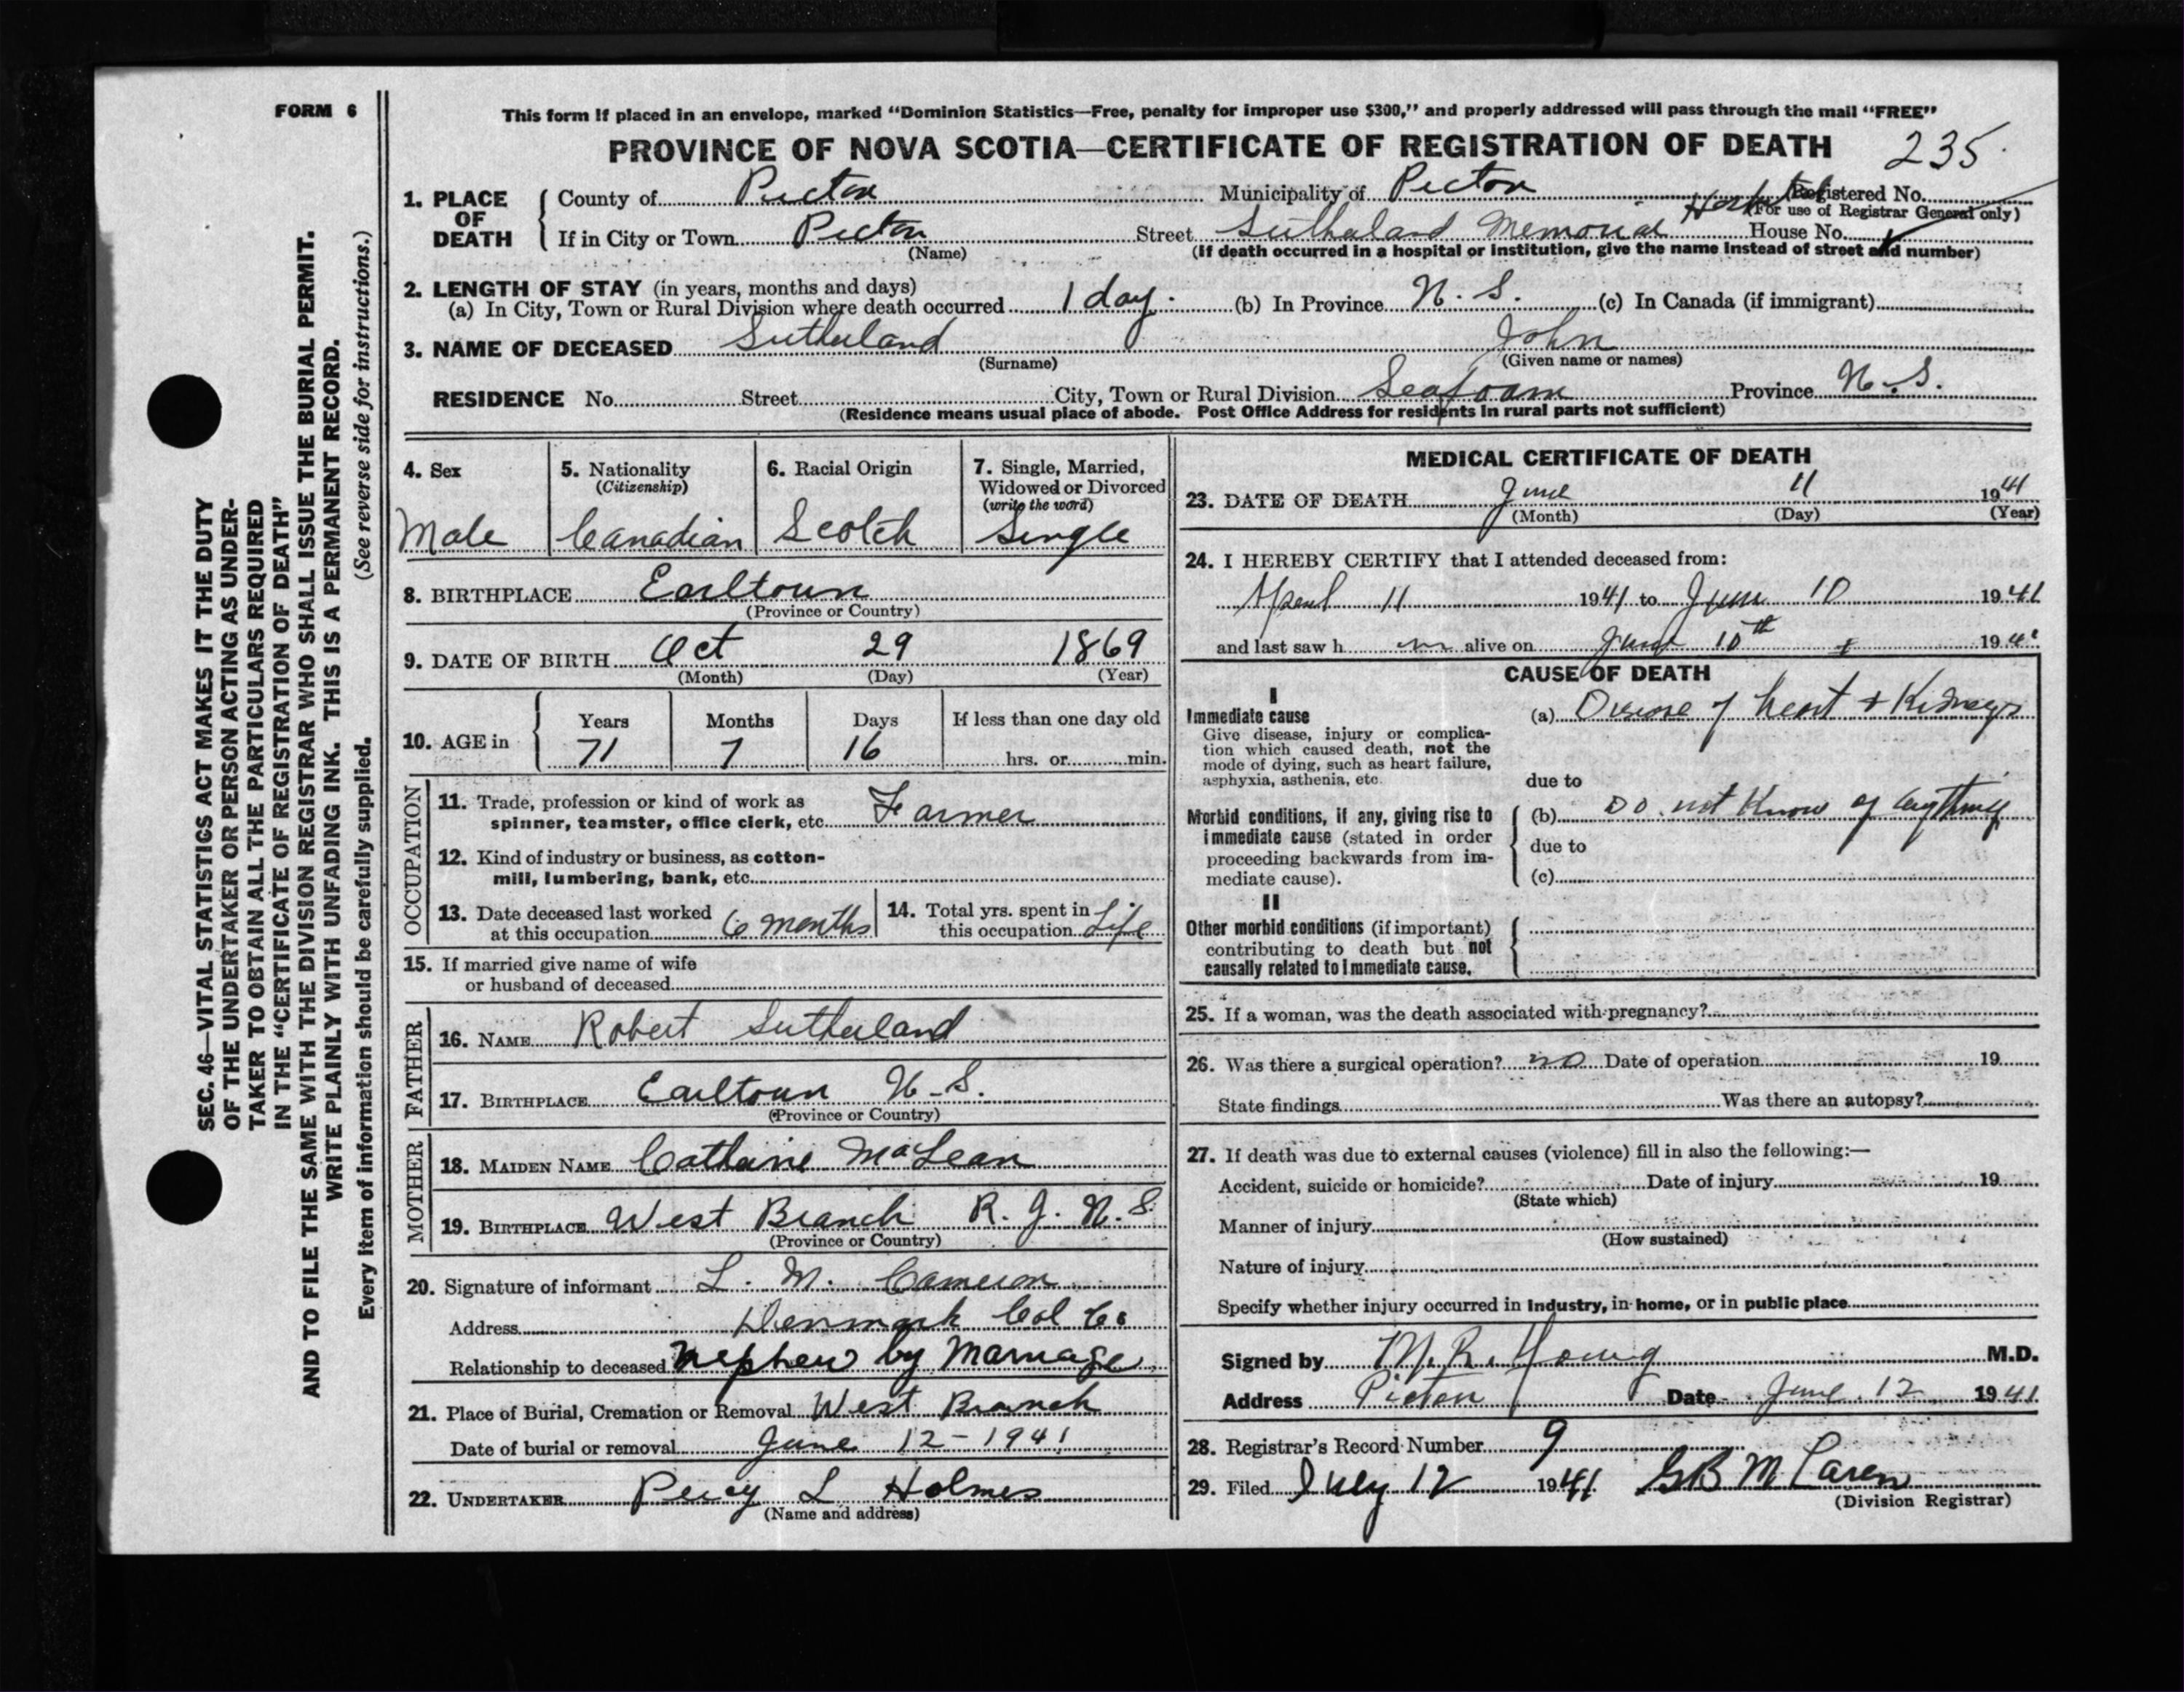 FORM 6
This form if placed in an envelope, marked "Dominion Statistics—Free, penalty for improper use $300," and properly addressed will pass through the mail "FREE"
PROVINCE OF NOVA SCOTIA—CERTIFICATE OF REGISTRATION OF DEATH 235
1. PLACE OF DEATH
County of Pictou Municipality of Pictou Registered No.
(For use of Registrar General only)
If in City or Town Pictou Street Sutherland Memorial Hospital House No.
(Name) (If death occurred in a hospital or institution, give the name instead of street and number)
2. LENGTH OF STAY (in years, months and days)
(a) In City, Town or Rural Division where death occurred 1 day. (b) In Province N. S. (c) In Canada (if immigrant)
3. NAME OF DECEASED Sutherland John
(Surname) (Given name or names)
RESIDENCE No. Street City, Town or Rural Division Seafoam Province N. S.
(Residence means usual place of abode. Post Office Address for residents in rural parts not sufficient)
4. Sex
Male
5. Nationality
(Citizenship)
Canadian
6. Racial Origin
Scotch
7. Single, Married,
Widowed or Divorced
(write the word)
Single
8. BIRTHPLACE Earltown
(Province or Country)
9. DATE OF BIRTH Oct 29 1869
(Month) (Day) (Year)
10. AGE in
Years Months Days If less than one day old
71 7 16 hrs. or min.
OCCUPATION
11. Trade, profession or kind of work as
spinner, teamster, office clerk, etc. Farmer
12. Kind of industry or business, as cotton-
mill, lumbering, bank, etc.
13. Date deceased last worked
at this occupation 6 months
14. Total yrs. spent in
this occupation Life
15. If married give name of wife
or husband of deceased
FATHER
16. NAME Robert Sutherland
17. BIRTHPLACE Earltown N. S.
(Province or Country)
MOTHER
18. MAIDEN NAME Catherine MacLean
19. BIRTHPLACE West Branch R. J. N. S.
(Province or Country)
20. Signature of informant L. M. Cameron
Address Denmark Col Co
Relationship to deceased Nephew by Marriage
21. Place of Burial, Cremation or Removal West Branch
Date of burial or removal June 12 - 1941
22. UNDERTAKER Percy L Holmes
(Name and address)
MEDICAL CERTIFICATE OF DEATH
23. DATE OF DEATH June 11 1941
(Month) (Day) (Year)
24. I HEREBY CERTIFY that I attended deceased from:
April 11 1941 to June 10 1941
and last saw h im alive on June 10th 194
CAUSE OF DEATH
I
Immediate cause
Give disease, injury or complica-
tion which caused death, not the
mode of dying, such as heart failure,
asphyxia, asthenia, etc.
(a) Disease of heart + Kidneys
due to
Morbid conditions, if any, giving rise to
immediate cause (stated in order
proceeding backwards from im-
mediate cause).
(b) Do not Know of anything
due to
(c)
II
Other morbid conditions (if important)
contributing to death but not
causally related to immediate cause.
25. If a woman, was the death associated with pregnancy?
26. Was there a surgical operation? no Date of operation 19
State findings Was there an autopsy?
27. If death was due to external causes (violence) fill in also the following:—
Accident, suicide or homicide? Date of injury 19
(State which)
Manner of injury
(How sustained)
Nature of injury
Specify whether injury occurred in industry, in home, or in public place
Signed by M. R. Young M.D.
Address Pictou Date June 12 1941
28. Registrar's Record Number 9
29. Filed July 12 1941 G B McLaren
(Division Registrar)
SEC. 46—VITAL STATISTICS ACT MAKES IT THE DUTY
OF THE UNDERTAKER OR PERSON ACTING AS UNDER-
TAKER TO OBTAIN ALL THE PARTICULARS REQUIRED
IN THE "CERTIFICATE OF REGISTRATION OF DEATH"
AND TO FILE THE SAME WITH THE DIVISION REGISTRAR WHO SHALL ISSUE THE BURIAL PERMIT.
WRITE PLAINLY WITH UNFADING INK. THIS IS A PERMANENT RECORD.
Every item of information should be carefully supplied. (See reverse side for instructions.)